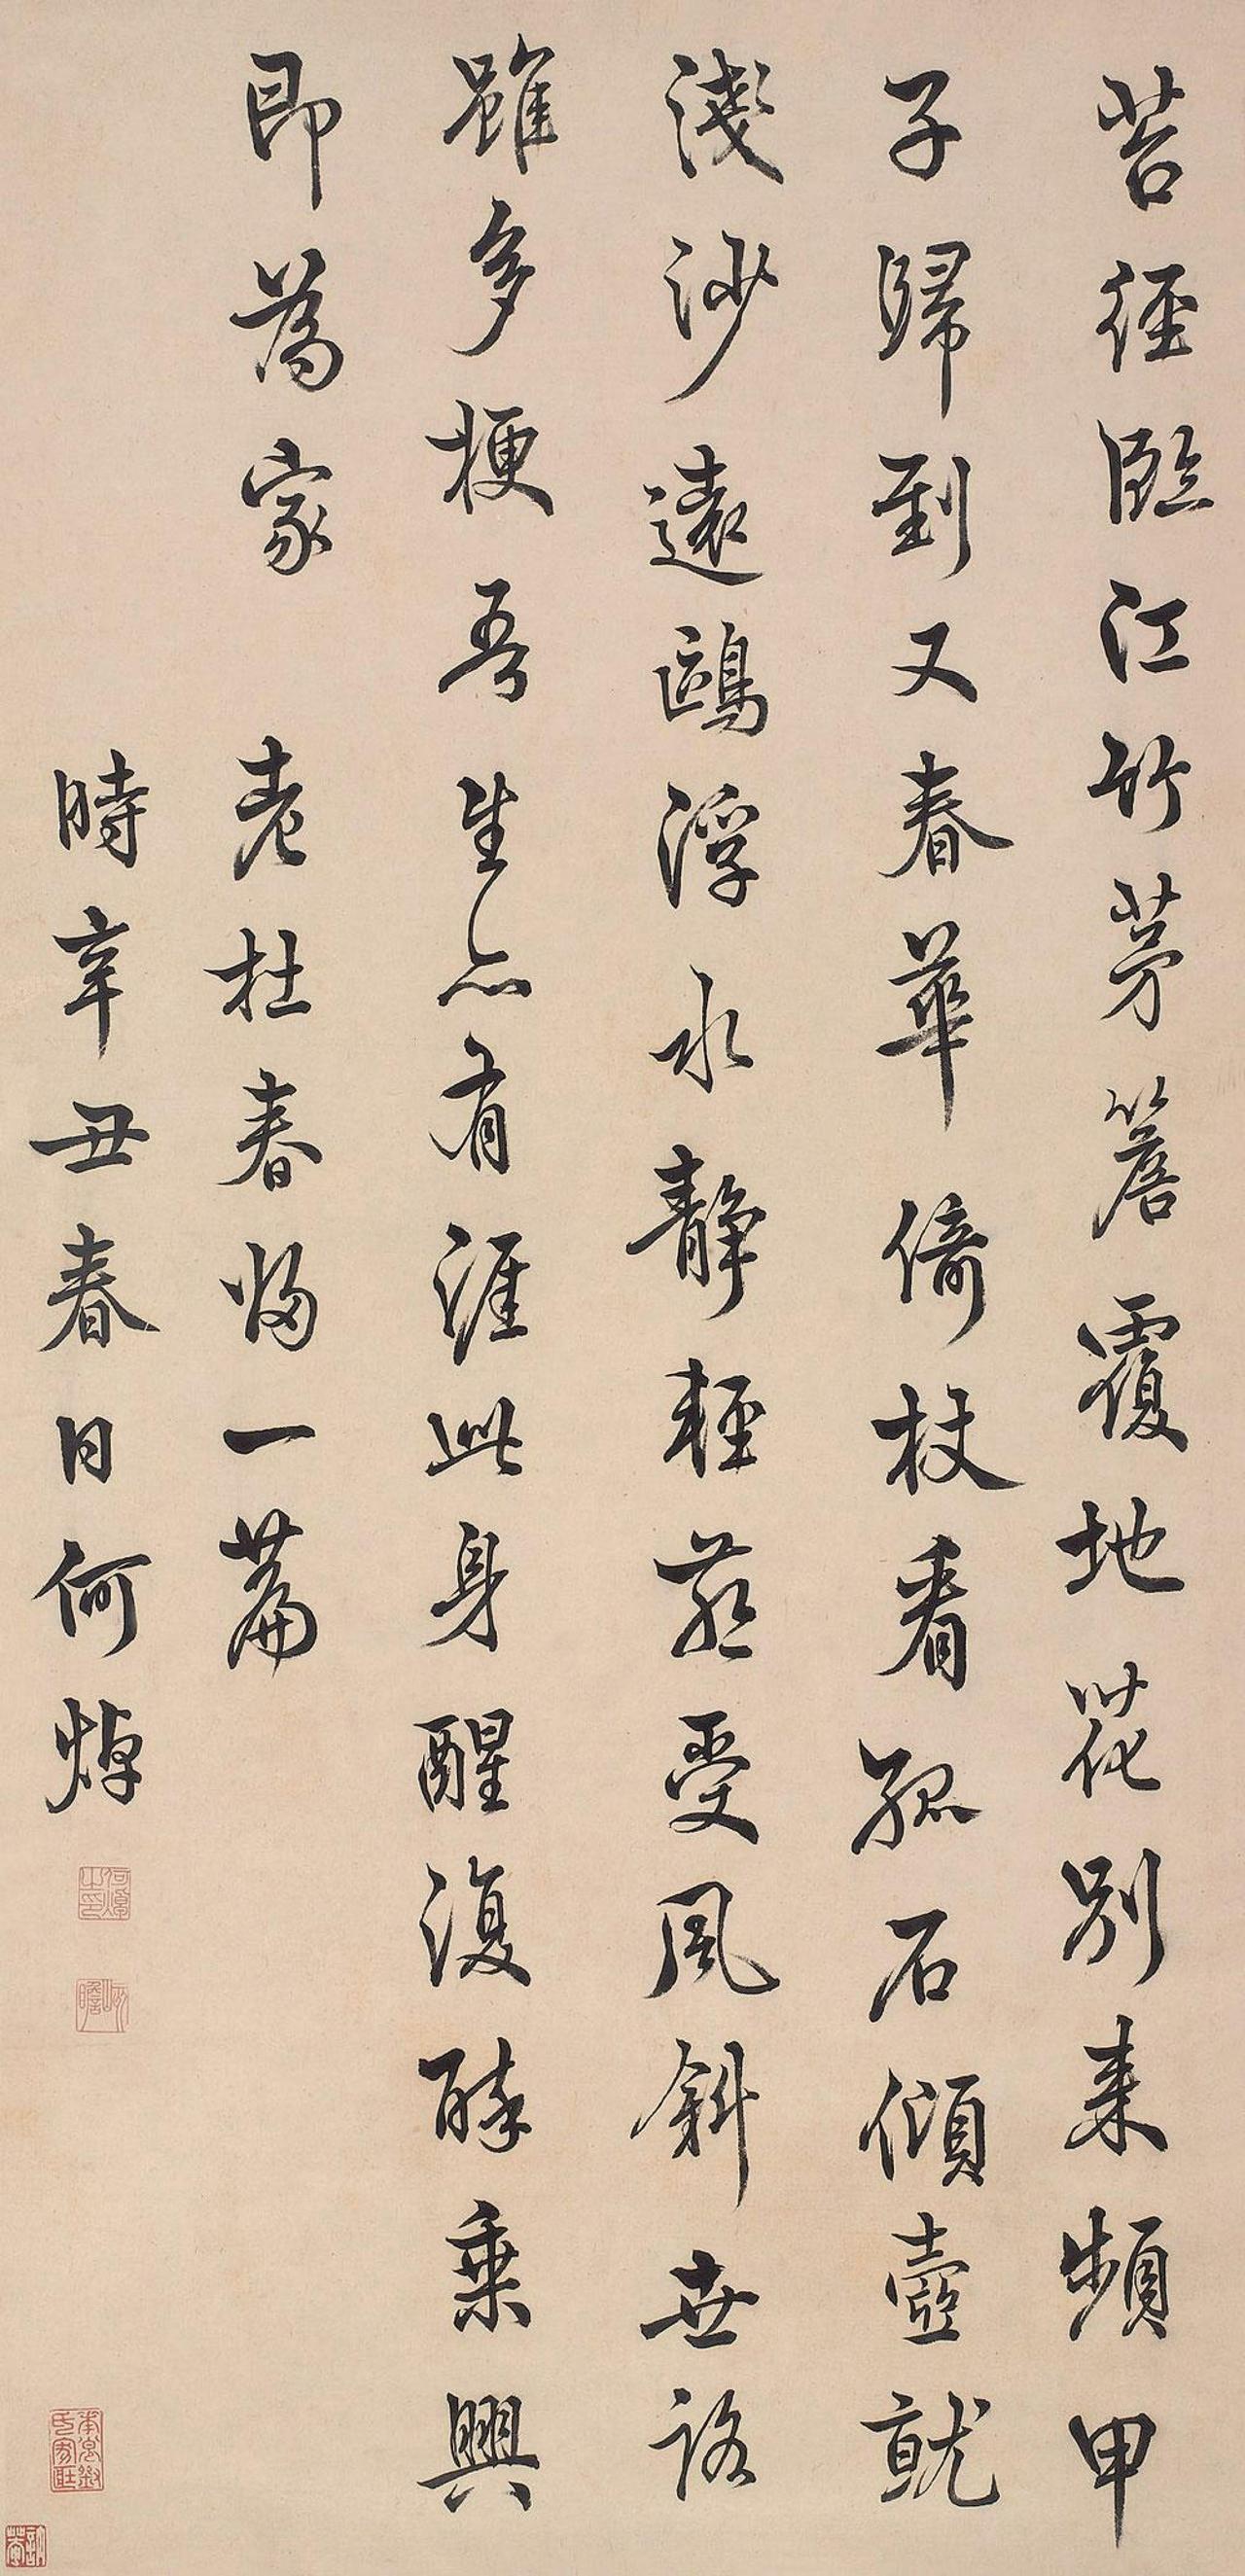 苔徑臨江竹茅簷覆地花別來頻甲
子歸到又春華倚杖看孤石傾壺就
淺沙遠鷗浮水靜輕燕受風斜世路
雖多梗吾生亦有涯此身醒復醉乘興
即為家 老杜春歸一篇
時辛丑春日何焯
何焯之印
屺瞻